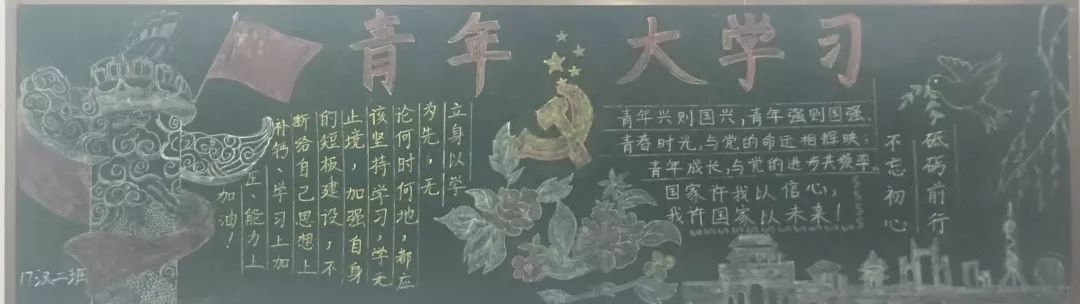 青年大学习
立身以学
为先,无
论何时何地,都应
该坚持学习,学无
止境,加强自身
的短板建设,不
断给自己思想上
补钙、学习上加
压、能力上
加油!
青年兴则国兴,青年强则国强。
青春时光,与党的命运相辉映;
青年成长,与党的进步共频率。
国家许我以信心,
我许国家以未来!
不忘初心
砥砺前行
17汉二班